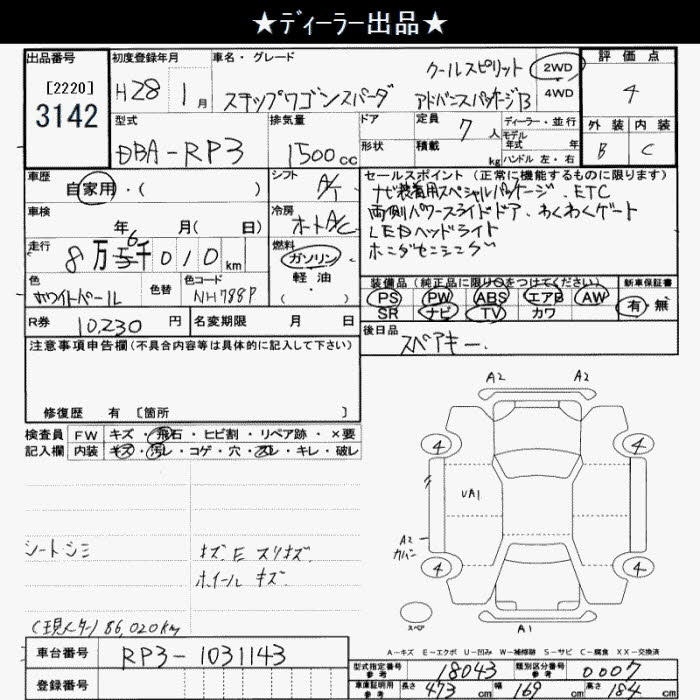 ★ディーラー出品★
出品番号 初度登録年月 車名・グレード 評価点
[2220] H28 1月 ステップワゴンスパーダ クールスピリット 2WD 4
3142 アドバンスパッケージB 4WD 外装 内装
型式 排気量 ドア 定員 7人 ディーラー・並行 B C
DBA-RP3 1500cc 形状 積載 kg モデル年式 年
ハンドル 左・右
車歴 自家用・( ) シフト A/T セールスポイント (正常に機能するものに限ります)
ナビ装着用スペシャルパッケージ、ETC
車検 年 月( 日) 冷房 オートA/C 両側パワースライドドア、わくわくゲート
走行 8万6千010km 燃料 ガソリン LEDヘッドライト
軽油 ホンダセンシング
色 ホワイトパール 色替 色コード NH788P ・( )
装備品(純正品に限り○をつけてください) 新車保証書
PS PW ABS エアB AW 有・無
SR ナビ TV カワ
R券 10,230円 名変期限 月 日 後日品 スペアキー、
注意事項申告欄(不具合内容等は具体的に記入して下さい)
修復歴 有 〔箇所 〕
検査員 FW キズ・飛石・ヒビ割・リペア跡・×要
記入欄 内装 キズ・汚レ・コゲ・穴・スレ・キレ・破レ
A2 A2
4 4
UA1
A2
4 4
スペア A1
シートシミ キズ E スリキズ
ホイールキズ
(現メーター) 86,020km
A-キズ E-エクボ U-凹み W-補修跡 S-サビ C-腐食 XX-交換済
車台番号 RP3-1031143
型式指定番号 参考 18043 類別区分番号 参考 0007
登録番号
車庫証明用 参考 長さ 473cm 幅 169cm 高さ 184cm